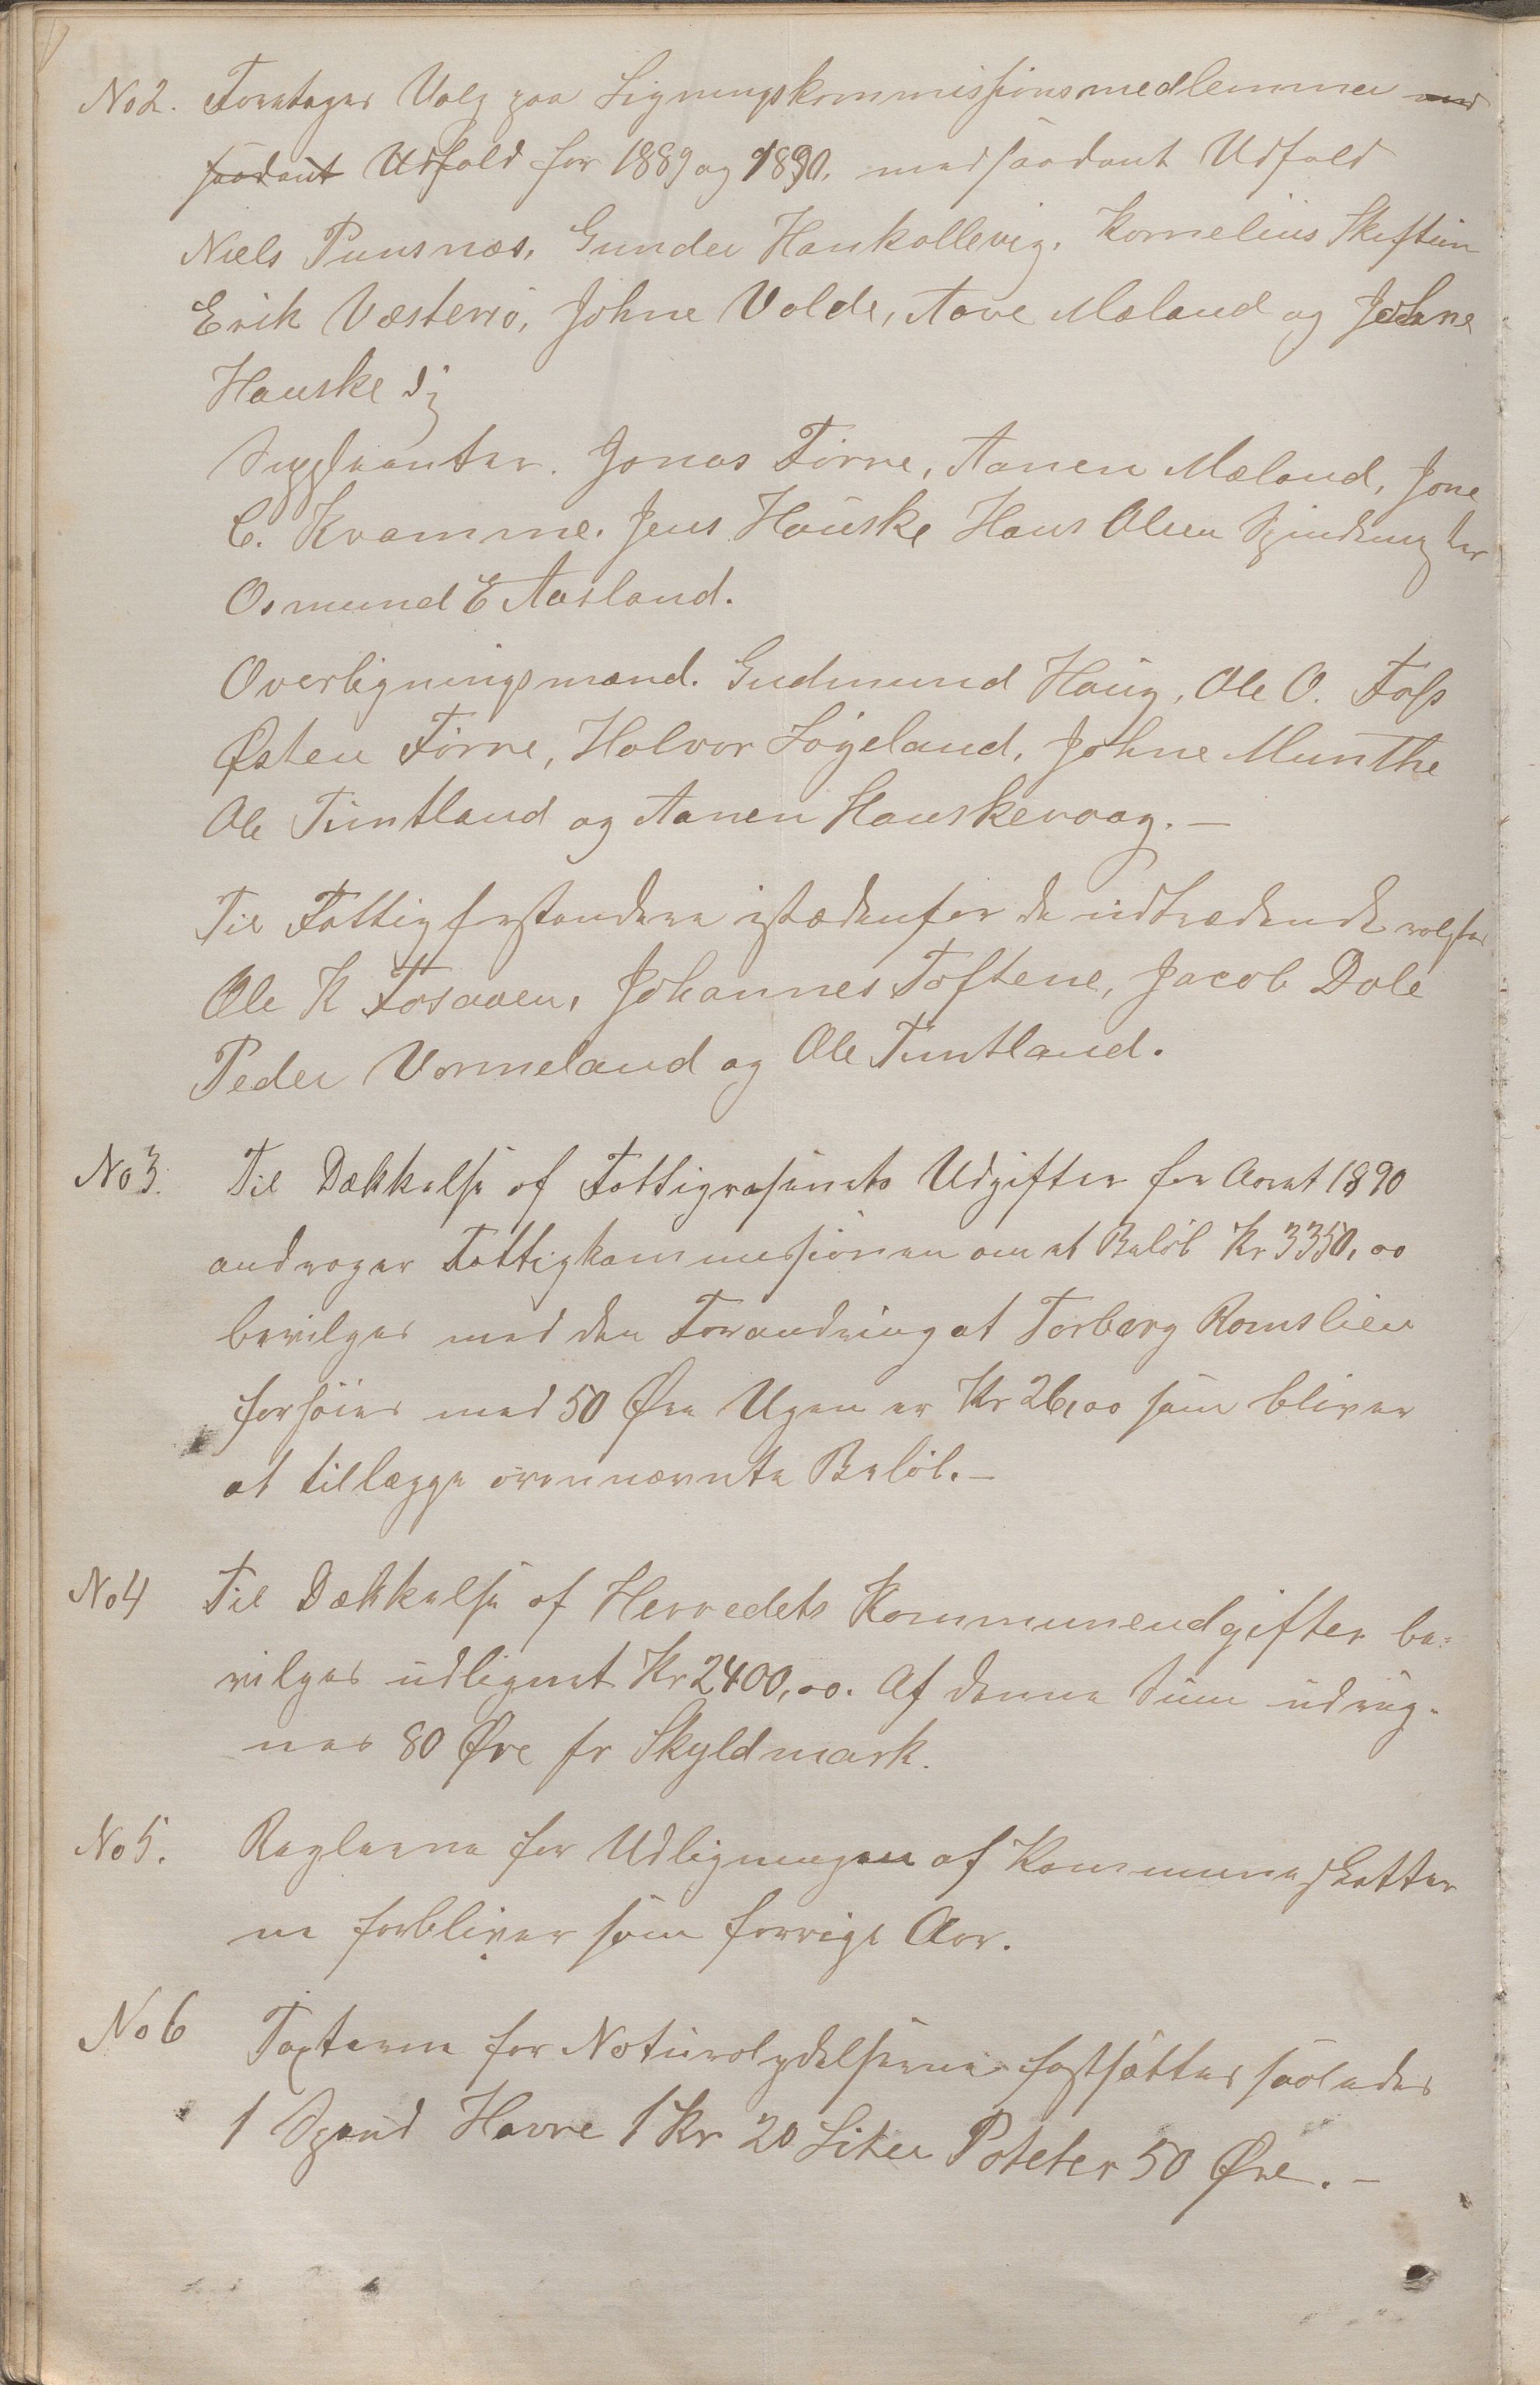 No 2. Foretages Valg paa Ligningskommissionsmedlemmer med
saadant Udfald for 1889 og 1890, med saadant Udfald
Niels Punsnæs, Gunder Hankallevig, Kornelius Skiftun
Erik Væsterrö, Johne Valde, Aave Mæland og Johne
Hauske
Suppleanter. Jonas Förre, Aanen Mæland, Jone
C. Kvamme, Jens Hauske Hans Olsen
Osmund E Aasland.
Overligningsmænd. Gudmund Haug, Ole O. Foss
Østen Förre, Halvor Løgeland, Johne Munthe
Ole Tuntland og Aanen Hauskevaag. —
Til Fattigforstandere istædenfor de udtrædende valgtes
Ole K Fosaaen, Johannes Toftene, Jacob Dale
Peder Vormeland og Ole Tuntland.
No 3. Til Dækkelse af Fattigvæsenets Udgifter for Aaret 1890
andrager Fattigkommissionen om et Beløb Kr 3350,00
bevilges med den Forandring at Torberg Romslien
forhöies med 50 Øre Ugen er Kr 26,00 som bliver
at tillægge ovennævnte Beløb. —
No 4 Til Dækkelse af Herredets Kommuneudgifter be-
vilges udlignet Kr 2400,00. Af denne Sum udreg-
nes 80 Øre pr Skyldmark.
No 5. Reglerne for Udligningen af Kommuneskatter
ne forbliver som forrige Aar.
No 6 Taxterne for Naturalydelserne fastsættes saaledes
1 Spand Havre 1 Kr 20 Liter Poteter 50 Øre. —